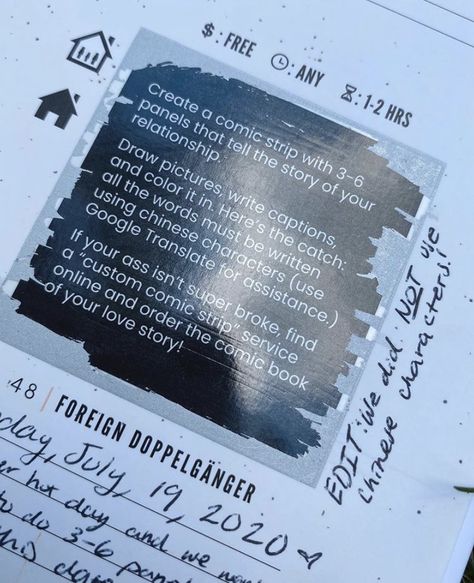 $: FREE
: ANY
: 1-2 HRS
Create a comic strip with 3-6
panels that tell the story of your
relationship.
Draw pictures, write captions,
and color it in. Here's the catch:
all the words must be written
using chinese characters (use
Google Translate for assistance.)
If your ass isn't super broke, find
a "custom comic strip" service
online and order the comic book
of your love story!
EDIT: We did NOT use
chinese characters!
48 | FOREIGN DOPPELGÄNGER
day, July, 19, 2020
hot day and we
to do 3-6